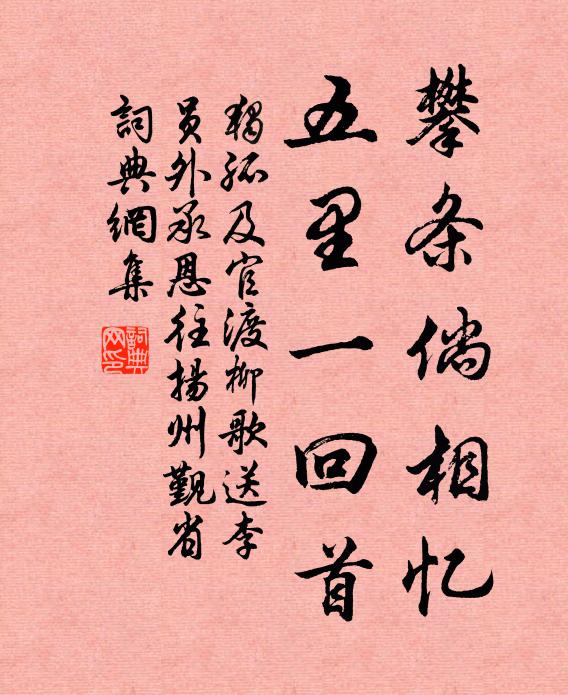 攀条倘相忆
五里一回首
独孤及官渡柳歌送李
员外承恩往扬州觐省
詞典網集
詞典
网印